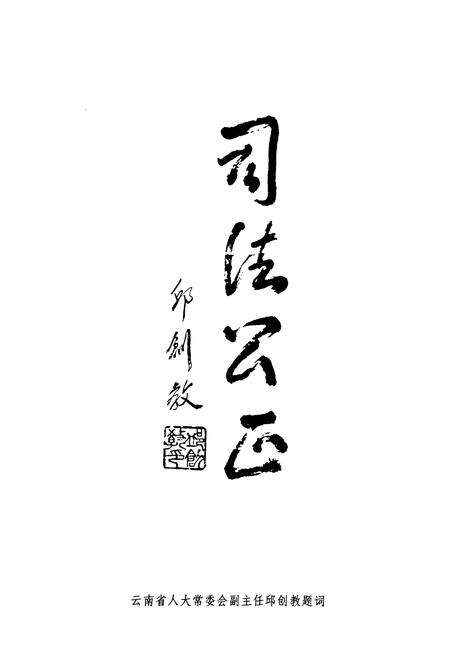 司法公正
邱創教
邱創教印
云南省人大常委会副主任邱创教题词